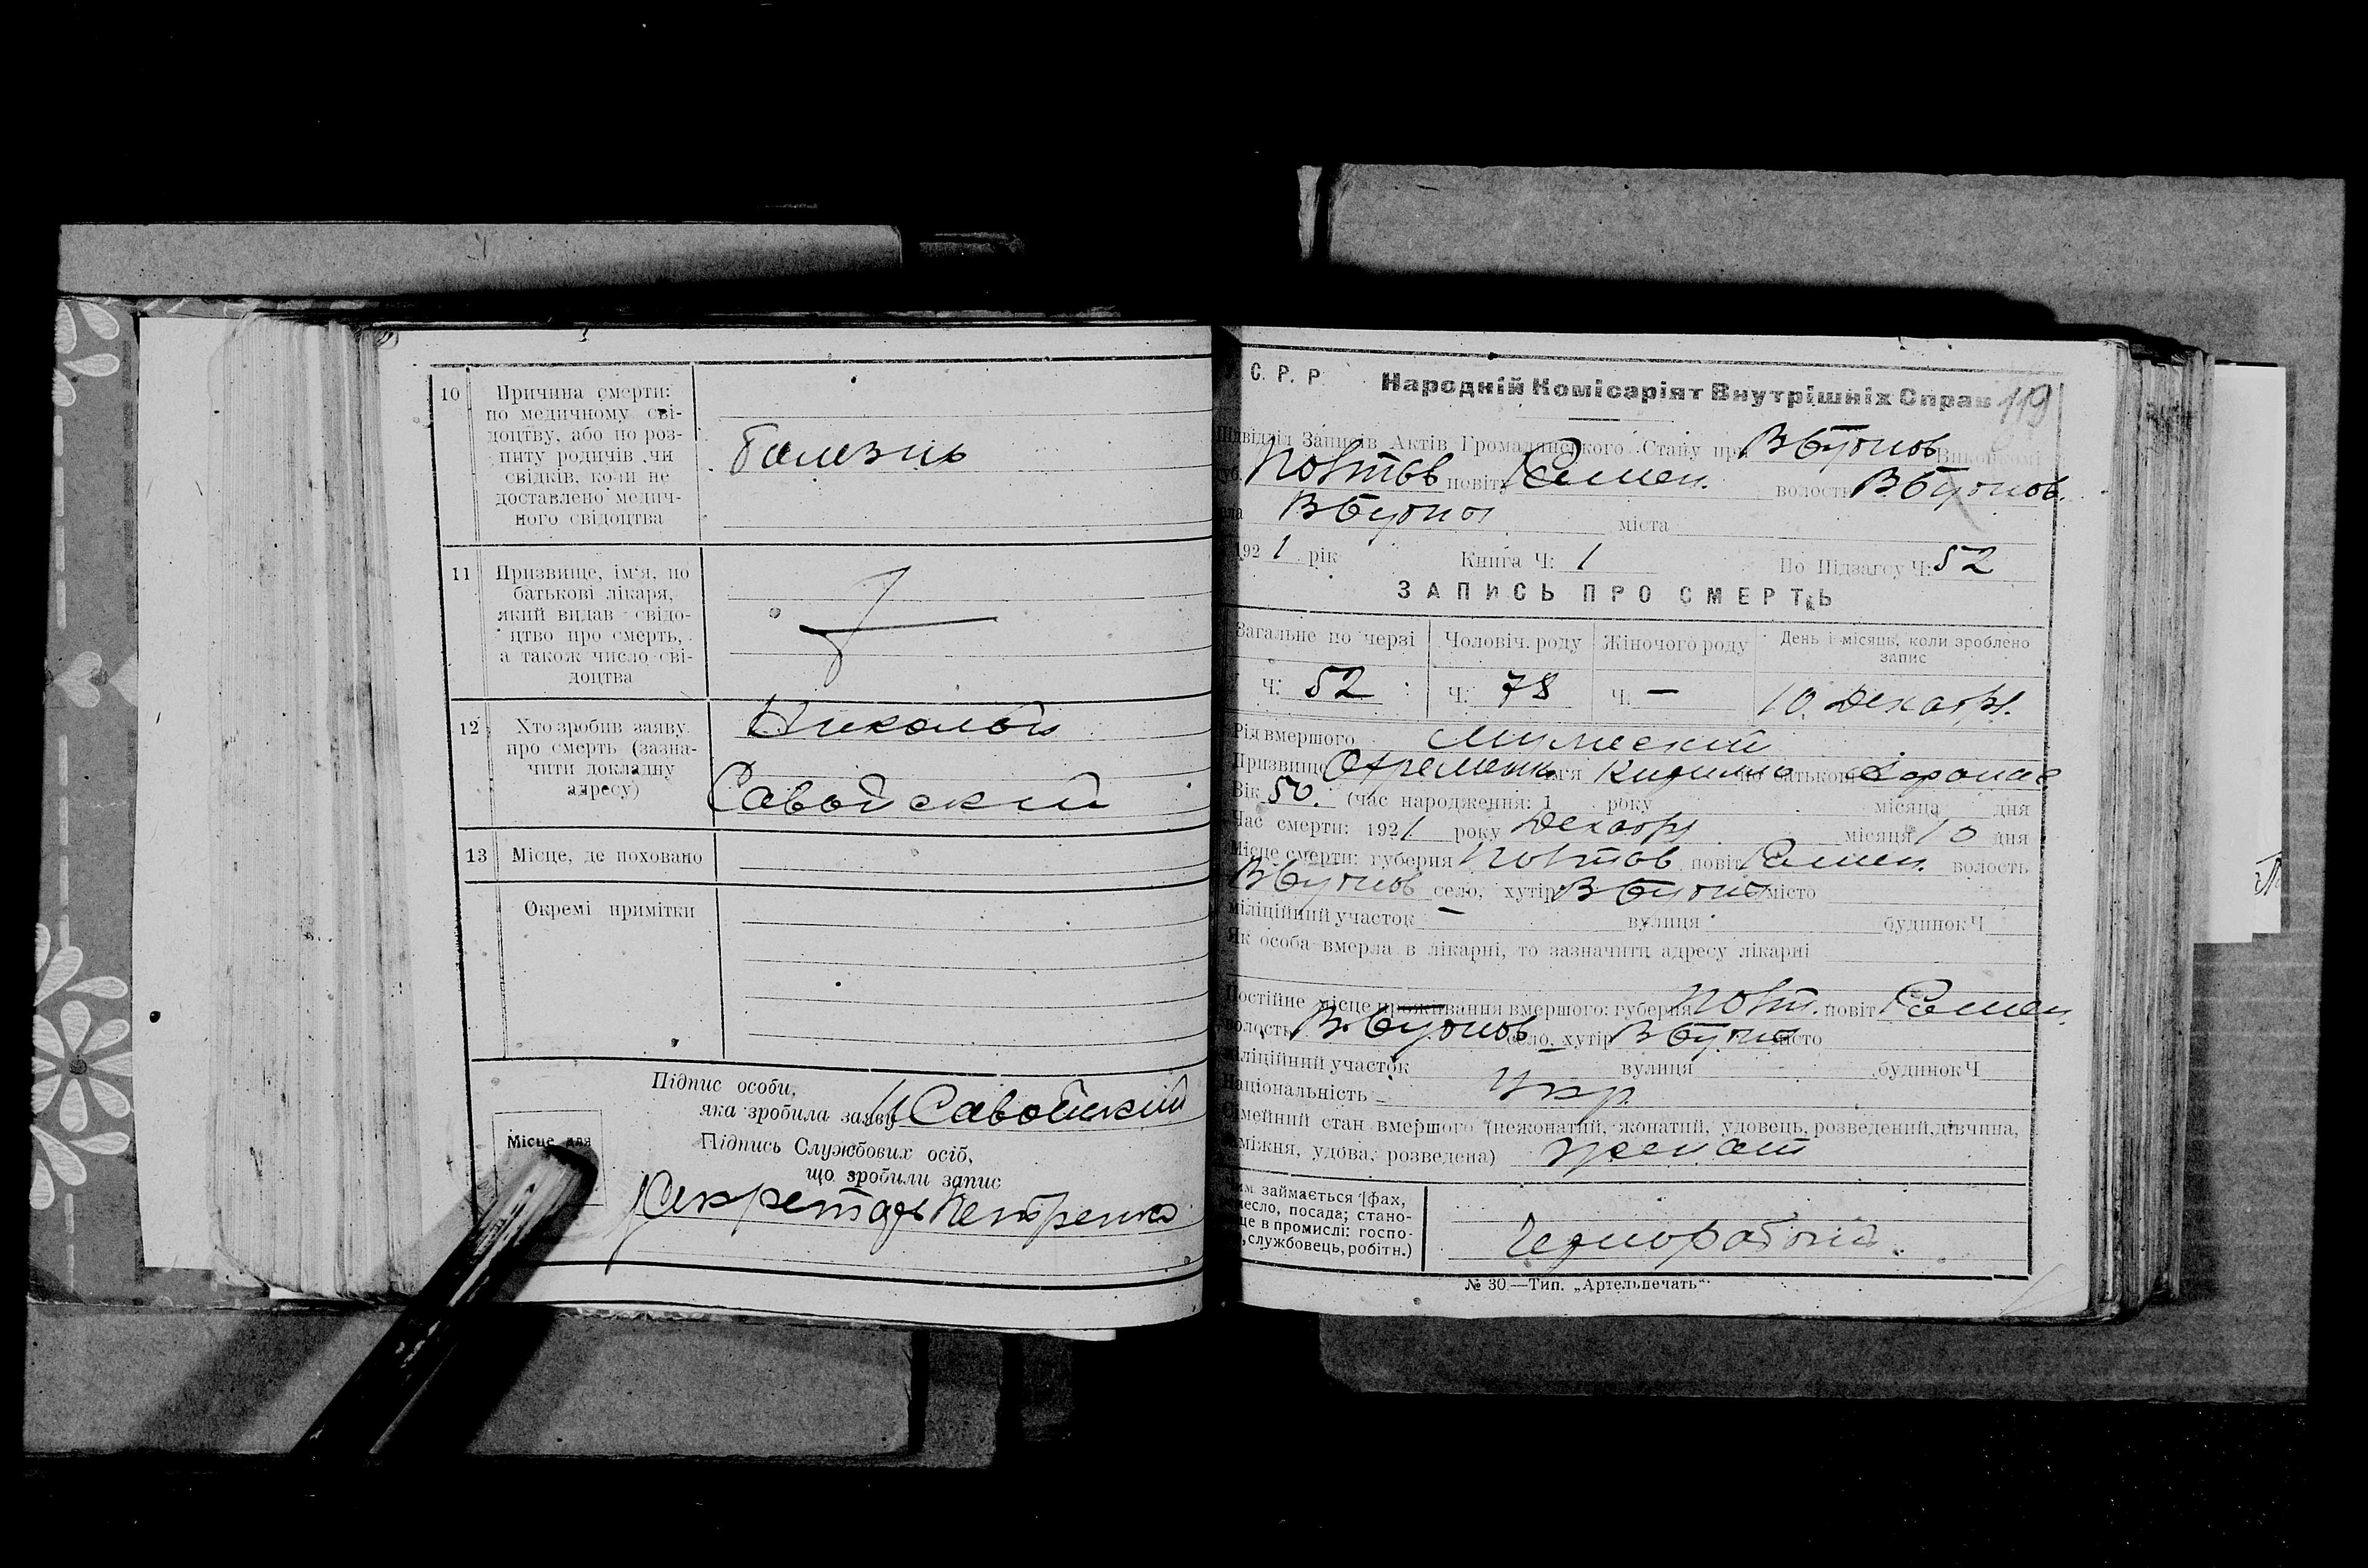 10 Причина смерти:
по медичному сві-
доцтву, або по роз-
питу родичів чи
свідків, коли не
доставлено медич-
ного свідоцтва
болезнь
11 Призвище, ім'я, по
батькові лікаря,
який видав свідо-
цтво про смерть,
а також число сві-
доцтва
12 Хто зробив заяву
про смерть (зазна-
чити докладну
адресу)
Николай
Савойский
13 Місце, де поховано
Окремі примітки
Підпис особи,
яка зробила заяву Н Савойский
Підпись Службових осіб,
що зробили запис
Місце для
Секретарь Петренко
С. Р. Р.
Народній Комісаріят Внутрішніх Справ
119
Підвідділ Записів Актів Громадянського Стану при
повіту Ромен. волости
міста
1921 рік Книга Ч: 1 По Підзагсу Ч: 52
ЗАПИСЬ ПРО СМЕРТЬ
Загальне по черзі Чоловіч. роду Жіночого роду День і місяць, коли зроблено
запис
Ч: 52 Ч: 78 Ч. — 10. Декабр.
Рід вмершого Мужеский
Призвище ім'я по батькові
Вік 50. (час народження: 1 року місяца дня
Час смерти: 1921 року Декабр місяця 10 дня
Місце смерти: губерня Полтав повіт Ромен. волость
село, хутір місто
міліційний участок — вулиця будинок Ч
Як особа вмерла в лікарні, то зазначити адресу лікарні
Постійне місце проживання вмершого: губерня Полт. повіт Ромен.
волость село, хутір місто
міліційний участок вулиця будинок Ч
Національність Укр.
Сімейний стан вмершого (нежонатий, жонатий, удовець, розведений, дівчина,
заміжня, удова, розведена) женат
Чим займається [фах,
ремесло, посада; стано-
вище в промислі: госпо-
службовець, робітн.)
Чернорабочий.
№ 30—Тип. „Артельпечать"